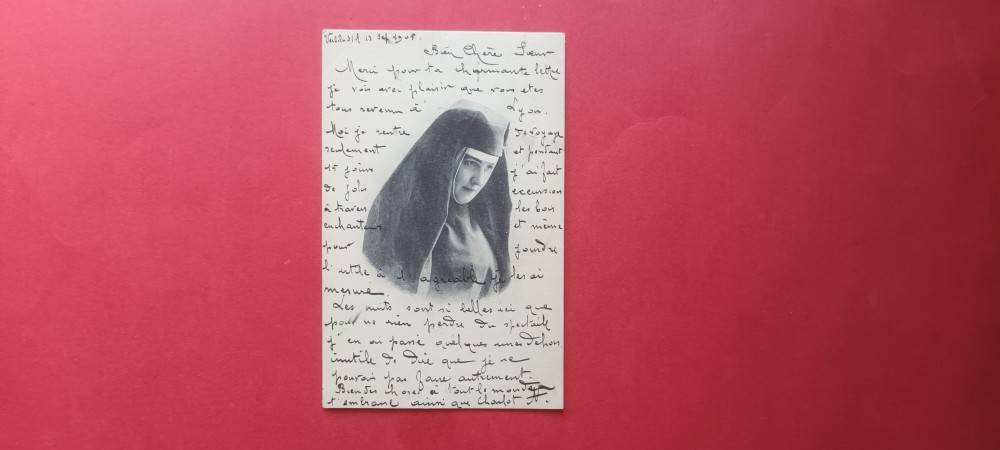 13 Sep 1905.
Bien Chère Soeur
Merci pour ta charmante lettre
je vois avec plaisir que vous etes
tous revenu à Lyon.
Moi je rentre de voyage
seulement et pendant
15 jours j'ai fait
de jolis excursion
à travers les bois
enchanteurs et même
pour joindre
l'utile à l'agreable je les ai
mesure.
Les nuits sont si belles ici que
pour ne rien perdre du spectacle
j'en ai passé quelques unes dehors
inutile de dire que je ne
pouvais pas faire autrement.
Bien des choses à tout le monde
t'embrasse ainsi que Charlot